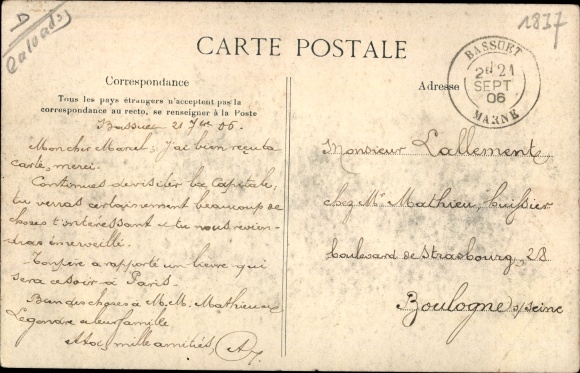 D
Calvados
1837
CARTE POSTALE
Correspondance
Tous les pays étrangers n'acceptent pas la
correspondance au recto, se renseigner à la Poste
Adresse
BASSUET
2d 21
SEPT
06
MARNE
Bassuet 21 7bre 06.
Mon cher Marcel, J'ai bien reçu ta
carte, merci.
Continues de visiter la Capitale,
tu verras certainement beaucoup de
choses t'intéressant et tu nous revien-
dras émerveillé.
Ton père a rapporté un lièvre qui
sera ce soir à Paris.
Bien des choses à M.M. Mathieu et
Legendre et leur famille
A toi, mille amitiés,
Monsieur Lallement
chez Mr Mathieu, huissier
boulevard de Strasbourg, 28
Boulogne s/seine